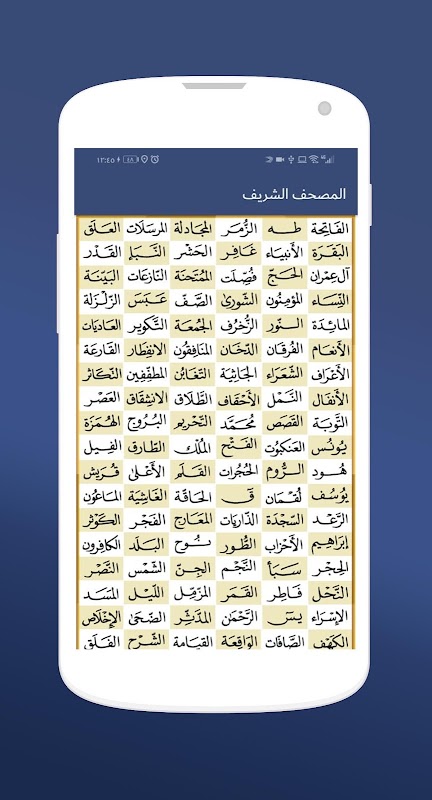 ١٢:٤٥
المصحف الشريف
الفَاتِحَة طـه الزُّمَر المجَادلة المرسَلات العَلَق
البَقَرَة الأنبيَاء غَافِر الحَشْر النَّبَإ القَدْر
آل عِمْرَان الحَجّ فُصِّلَت المُمتَحنَة النّازعَات البَيّنَة
النِّسَاء المؤمِنُون الشّورىٰ الصَّف عَبَسَ الزَّلْزَلة
المائِدَة النّور الزّخْرُف الجُمعَة التّكوير العَاديَات
الأنعَام الفُرقَان الدّخَان المنَافِقُون الانفِطار القَارعَة
الأعْرَاف الشّعَراء الجَاثِيَة التّغَابُن المطفّفِين التّكاثر
الأنفَال النَّمْل الأحْقَاف الطَّلَاق الانشِقَاق العَصْر
التَّوبَة القَصَص مُحَمّد التّحْريم البُروج الهُمَزَة
يُونُس العَنكبُوت الفَتْح المُلْك الطّارق الفِيل
هُود الرُّوم الحُجُرات القَلَم الأعْلىٰ قُرَيش
يُوسُف لُقمَان قٓ الحَاقَّة الغَاشِيَة المَاعُون
الرَّعْد السَّجْدَة الذَّاريَات المعَارج الفَجْر الكَوْثَر
إبراهِيم الأحْزاب الطُّور نُوح البَلَد الكافِرون
الحِجْر سَبَأ النَّجْم الجِنّ الشَّمْس النَّصْر
النَّحْل فَاطِر القَمَر المزمّل اللَّيْل المَسَد
الإسْرَاء يسٓ الرَّحْمٰن المدَّثِّر الضّحَىٰ الإخْلَاص
الكَهْف الصَّافّات الوَاقِعَة القيَامَة الشَّرْح الفَلَق